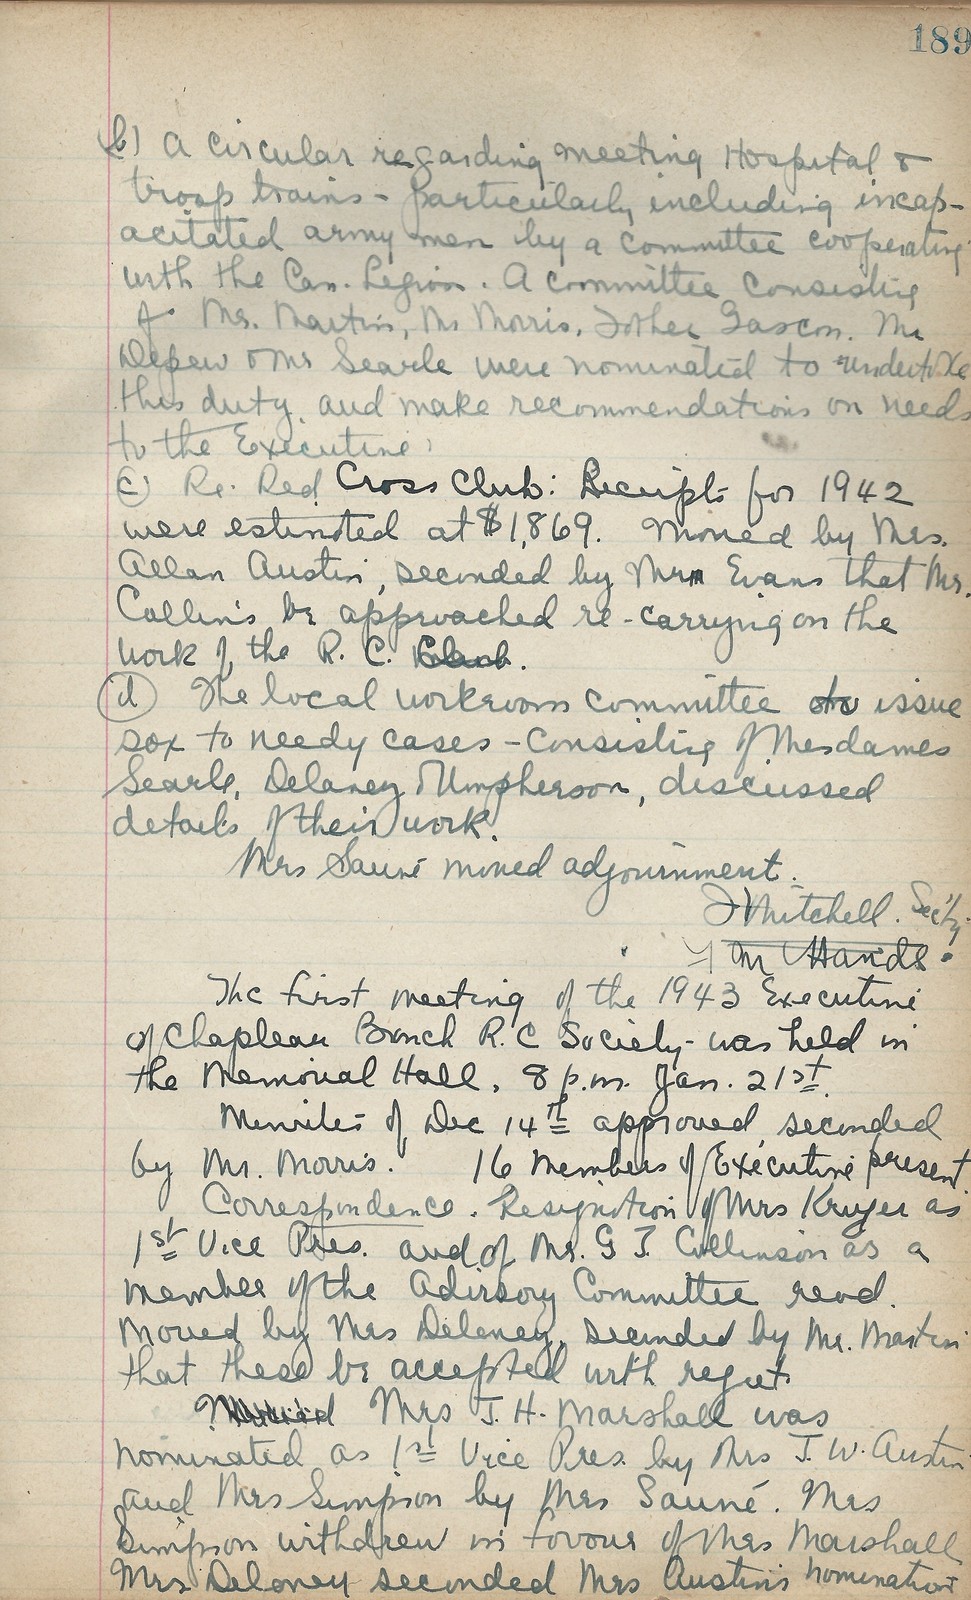 189
b) A circular regarding meeting Hospital &
troop trains - particularly including incap-
acitated army men by a committee cooperating
with the Can. Legion. A committee consisting
of Mr. Martin, Mr Morris, Father Gascon, Mr
Depew & Mr Searle were nominated to undertake
this duty and make recommendations on needs
to the Executive.
c) Re. Red Cross Club: Receipts for 1942
were estimated at $1,869. Moved by Mrs.
Allan Austin, seconded by Mrs Evans that Mr.
Collins be approached re-carrying on the
work of the R. C. Club.
d) The local workroom committee to issue
sox to needy cases - consisting of Mesdames
Searle, Delaney & Umpherson, discussed
details of their work.
Mrs Sauvé moved adjournment.
J Mitchell. Sec'ty.
M Hands.
The first meeting of the 1943 Executive
of Chapleau Branch R.C Society - was held in
the Memorial Hall, 8 p.m. Jan. 21st.
Minutes of Dec 14th approved, seconded
by Mr. Morris. 16 Members of Executive present.
Correspondence. Resignation of Mrs Kruger as
1st Vice Pres. and of Mr. G J. Collinson as a
member of the Advisory Committee read.
Moved by Mrs Delaney, seconded by Mr. Martin
that these be accepted with regret.
Mrs J. H. Marshall was
nominated as 1st Vice Pres. by Mrs J. W. Austin
and Mrs Simpson by Mrs Sauvé. Mrs
Simpson withdrew in favour of Mrs Marshall
Mrs Delaney seconded Mrs Austin's nomination